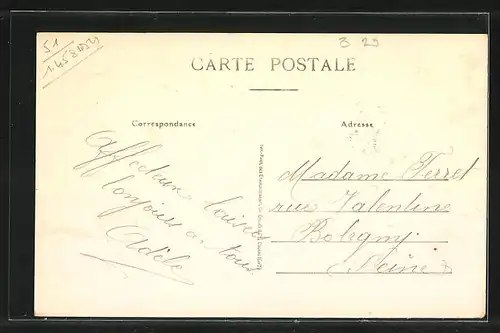 51
B 29
CARTE POSTALE
Correspondance
Adresse
Affectueux baisers
toujours à tous
Adèle
Madame Ferret
rue Valentine
Bobigny
Seine